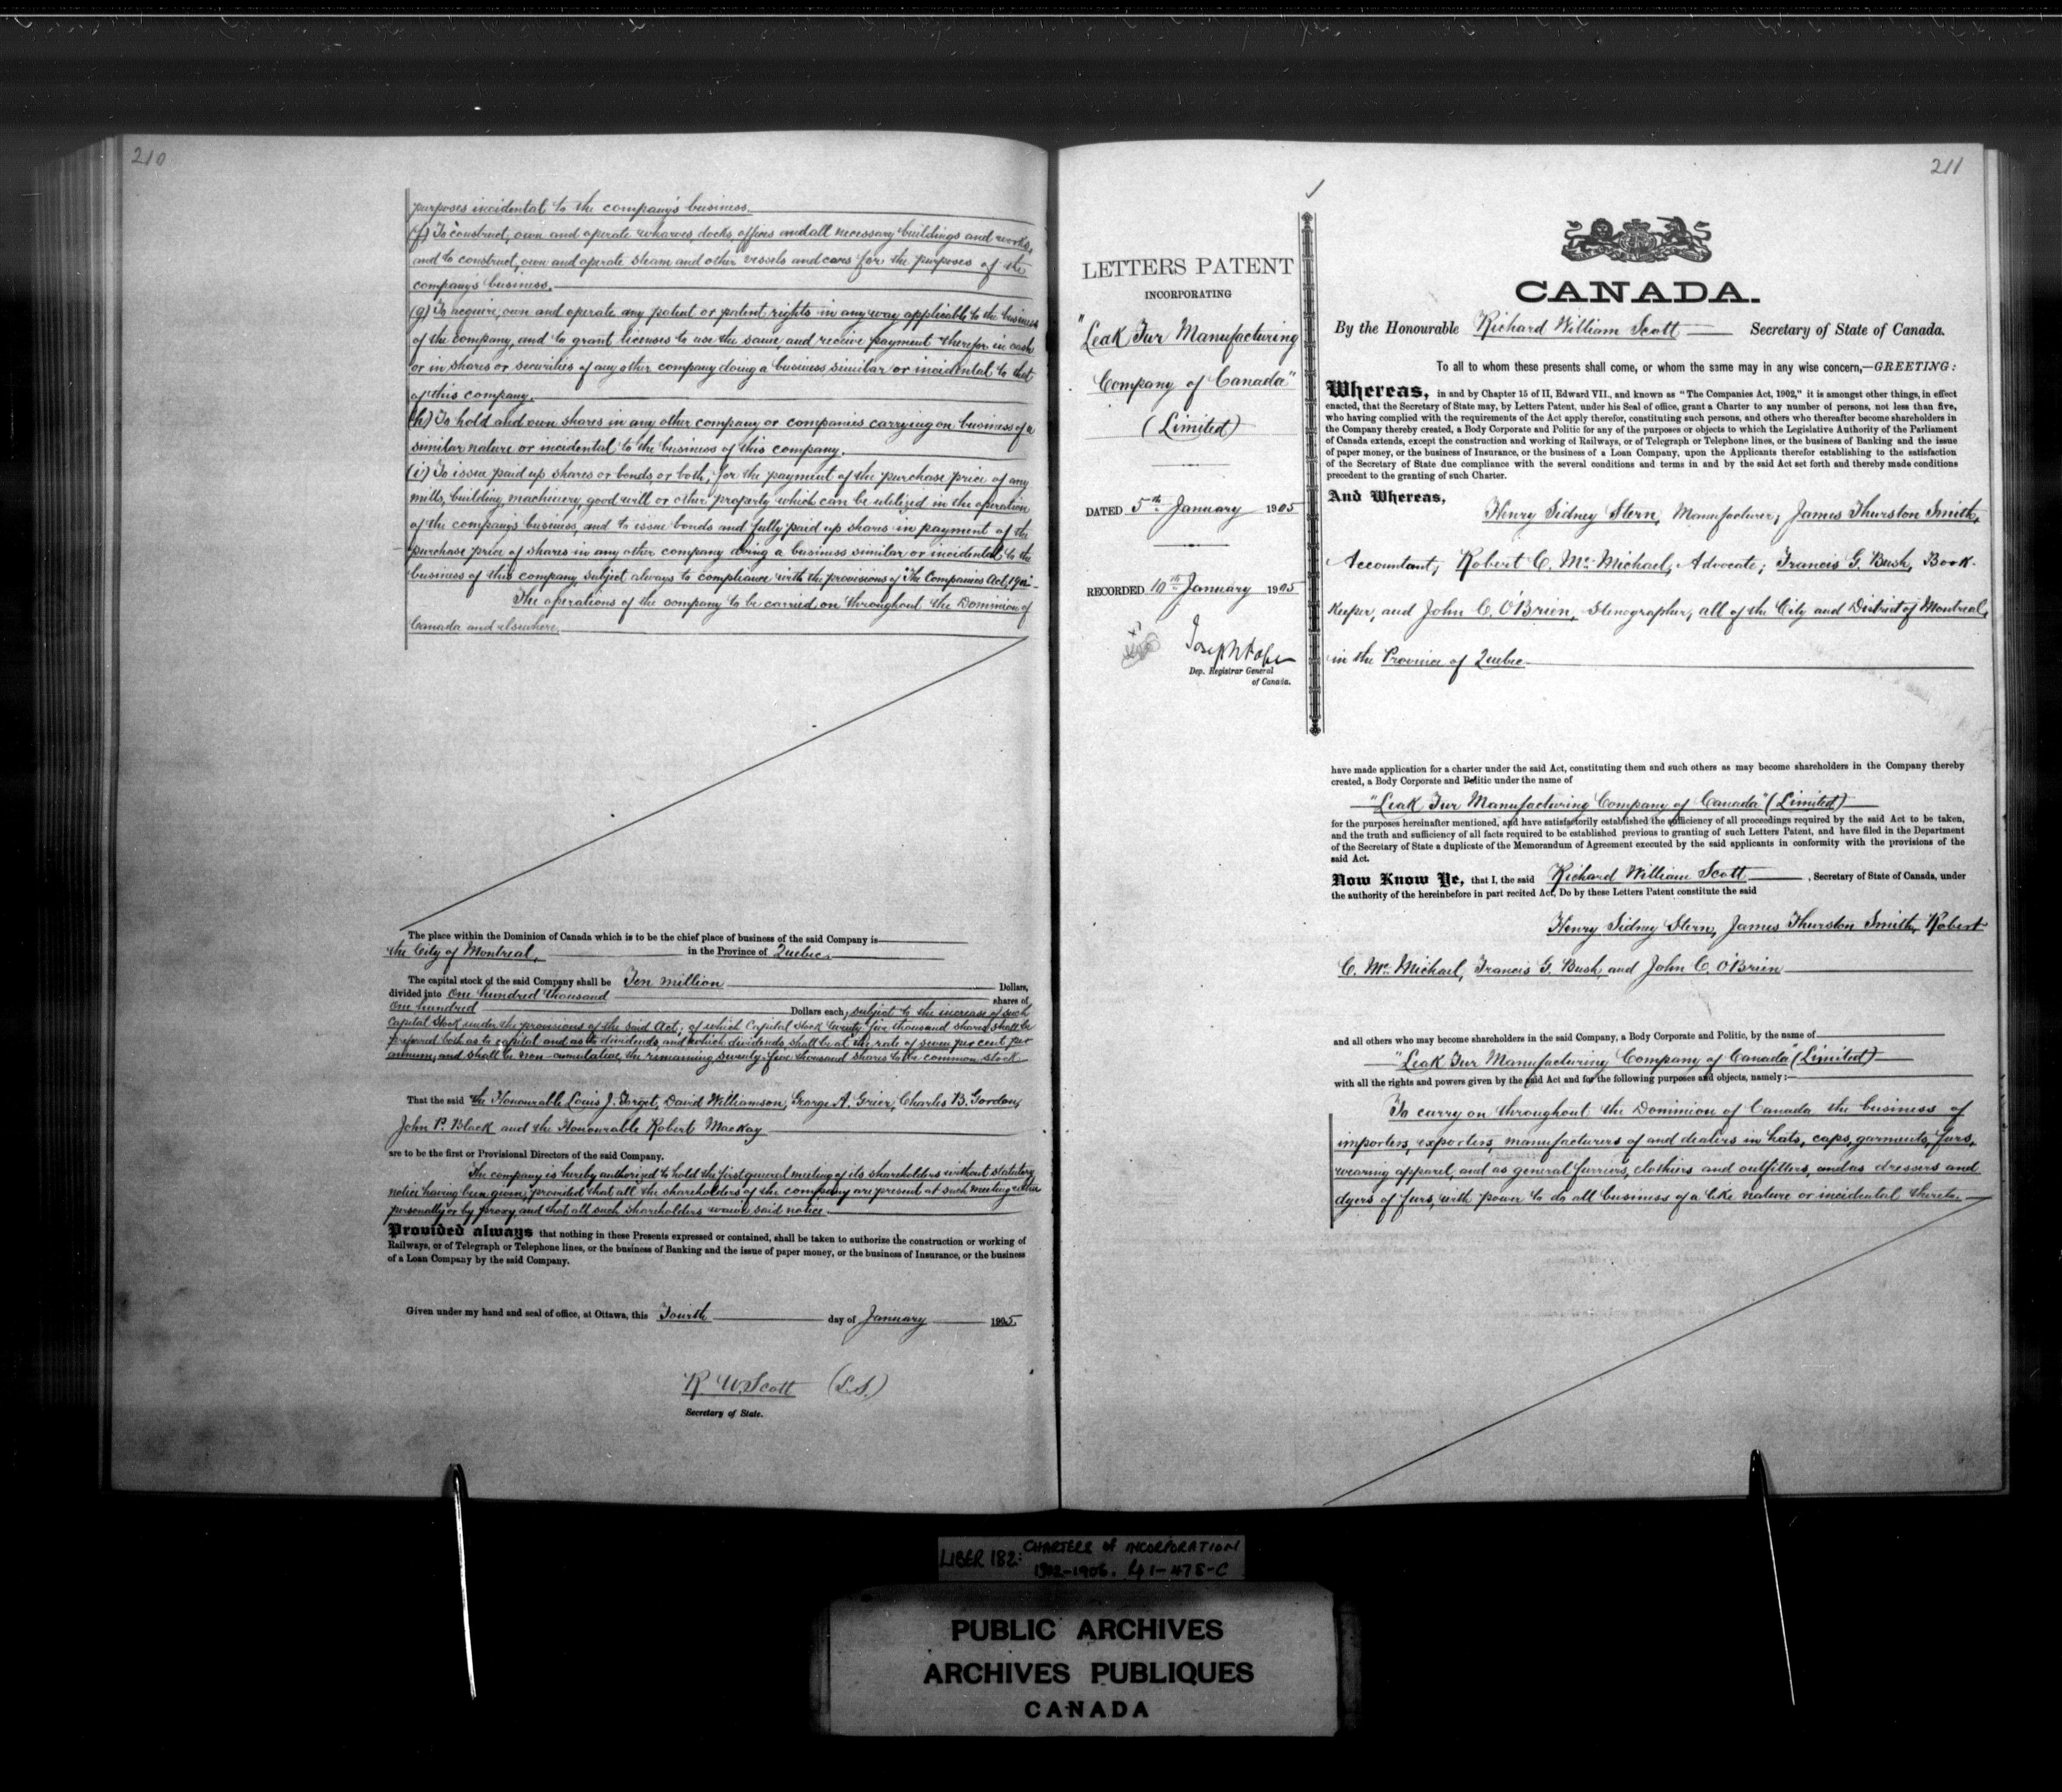 210
purposes incidental to the company's business.
(f) To construct, own and operate wharves, docks, offices and all necessary buildings and works,
and to construct, own and operate steam and other vessels and cars for the purposes of the
company's business.
(g) To acquire, own and operate any patent or patent rights in any way applicable to the business
of the company, and to grant licenses to use the same and receive payment therefor in cash
or in shares or securities of any other company doing a business similar or incidental to that
of this company.
(h) To hold and own shares in any other company or companies carrying on business of a
similar nature or incidental to the business of this company.
(i) To issue paid up shares or bonds, or both, for the payment of the purchase price of any
mills, building, machinery, good will or other property which can be utilized in the operation
of the company's business, and to issue bonds and fully paid up shares in payment of the
purchase price of shares in any other company doing a business similar or incidental to the
business of this company subject always to compliance with the provisions of "The Companies Act, 1902"
The operations of the company to be carried on throughout the Dominion of
Canada and elsewhere.
The place within the Dominion of Canada which is to be the chief place of business of the said Company is
the City of Montreal, in the Province of Quebec.
The capital stock of the said Company shall be Ten million Dollars,
divided into One hundred thousand shares of
One hundred Dollars each, subject to the increase of such
Capital Stock under the provisions of the said Act; of which Capital Stock twenty five thousand shares shall be
preferred both as to capital and as to dividends, and which dividends shall be at the rate of seven per cent per
annum, and shall be non-cumulative, the remaining seventy five thousand shares to be common stock
That the said the Honourable Louis J. Forget, David Williamson, George A. Grier, Charles B. Gordon,
John P. Black and the Honourable Robert Mackay
are to be the first or Provisional Directors of the said Company.
The company is hereby authorized to hold the first general meeting of its shareholders without statutory
notice having been given; provided that all the shareholders of the company are present at such meeting either
personally or by proxy and that all such shareholders waive said notice.
Provided always that nothing in these Presents expressed or contained, shall be taken to authorize the construction or working of
Railways, or of Telegraph or Telephone lines, or the business of Banking and the issue of paper money, or the business of Insurance, or the business
of a Loan Company by the said Company.
Given under my hand and seal of office, at Ottawa, this Fourth day of January 1905.
R. W. Scott (L.S.)
Secretary of State.
211
LETTERS PATENT
INCORPORATING
"Leak Fur Manufacturing
Company of Canada"
(Limited)
DATED 5th January 1905
RECORDED 10th January 1905
Joseph Pope
Dep. Registrar General
of Canada.
CANADA.
By the Honourable Richard William Scott Secretary of State of Canada.
To all to whom these presents shall come, or whom the same may in any wise concern,—GREETING:
Whereas, in and by Chapter 15 of II, Edward VII., and known as "The Companies Act, 1902," it is amongst other things, in effect
enacted, that the Secretary of State may, by Letters Patent, under his Seal of office, grant a Charter to any number of persons, not less than five,
who having complied with the requirements of the Act apply therefor, constituting such persons, and others who thereafter become shareholders in
the Company thereby created, a Body Corporate and Politic for any of the purposes or objects to which the Legislative Authority of the Parliament
of Canada extends, except the construction and working of Railways, or of Telegraph or Telephone lines, or the business of Banking and the issue
of paper money, or the business of Insurance, or the business of a Loan Company, upon the Applicants therefor establishing to the satisfaction
of the Secretary of State due compliance with the several conditions and terms in and by the said Act set forth and thereby made conditions
precedent to the granting of such Charter.
And Whereas,
Henry Sidney Stern, Manufacturer; James Thurston Smith,
Accountant; Robert C. McMichael, Advocate; Francis G. Bush, Book-
keeper, and John C. O'Brien, Stenographer, all of the City and District of Montreal,
in the Province of Quebec
have made application for a charter under the said Act, constituting them and such others as may become shareholders in the Company thereby
created, a Body Corporate and Politic under the name of
"Leak Fur Manufacturing Company of Canada" (Limited)
for the purposes hereinafter mentioned, and have satisfactorily established the sufficiency of all proceedings required by the said Act to be taken,
and the truth and sufficiency of all facts required to be established previous to granting of such Letters Patent, and have filed in the Department
of the Secretary of State a duplicate of the Memorandum of Agreement executed by the said applicants in conformity with the provisions of the
said Act.
Now Know Ye, that I, the said Richard William Scott, Secretary of State of Canada, under
the authority of the hereinbefore in part recited Act, Do by these Letters Patent constitute the said
Henry Sidney Stern, James Thurston Smith, Robert
C. McMichael, Francis G. Bush and John C. O'Brien
and all others who may become shareholders in the said Company, a Body Corporate and Politic, by the name of
"Leak Fur Manufacturing Company of Canada" (Limited)
with all the rights and powers given by the said Act and for the following purposes and objects, namely:—
To carry on throughout the Dominion of Canada the business of
importers, exporters, manufacturers of and dealers in hats, caps, garments, furs,
wearing apparel, and as general furriers, clothiers and outfitters, and as dressers and
dyers of furs, with power to do all business of a like nature or incidental thereto.
LIBER 182: CHARTERS of INCORPORATION
1902-1906. 41-478-C
PUBLIC ARCHIVES
ARCHIVES PUBLIQUES
CANADA